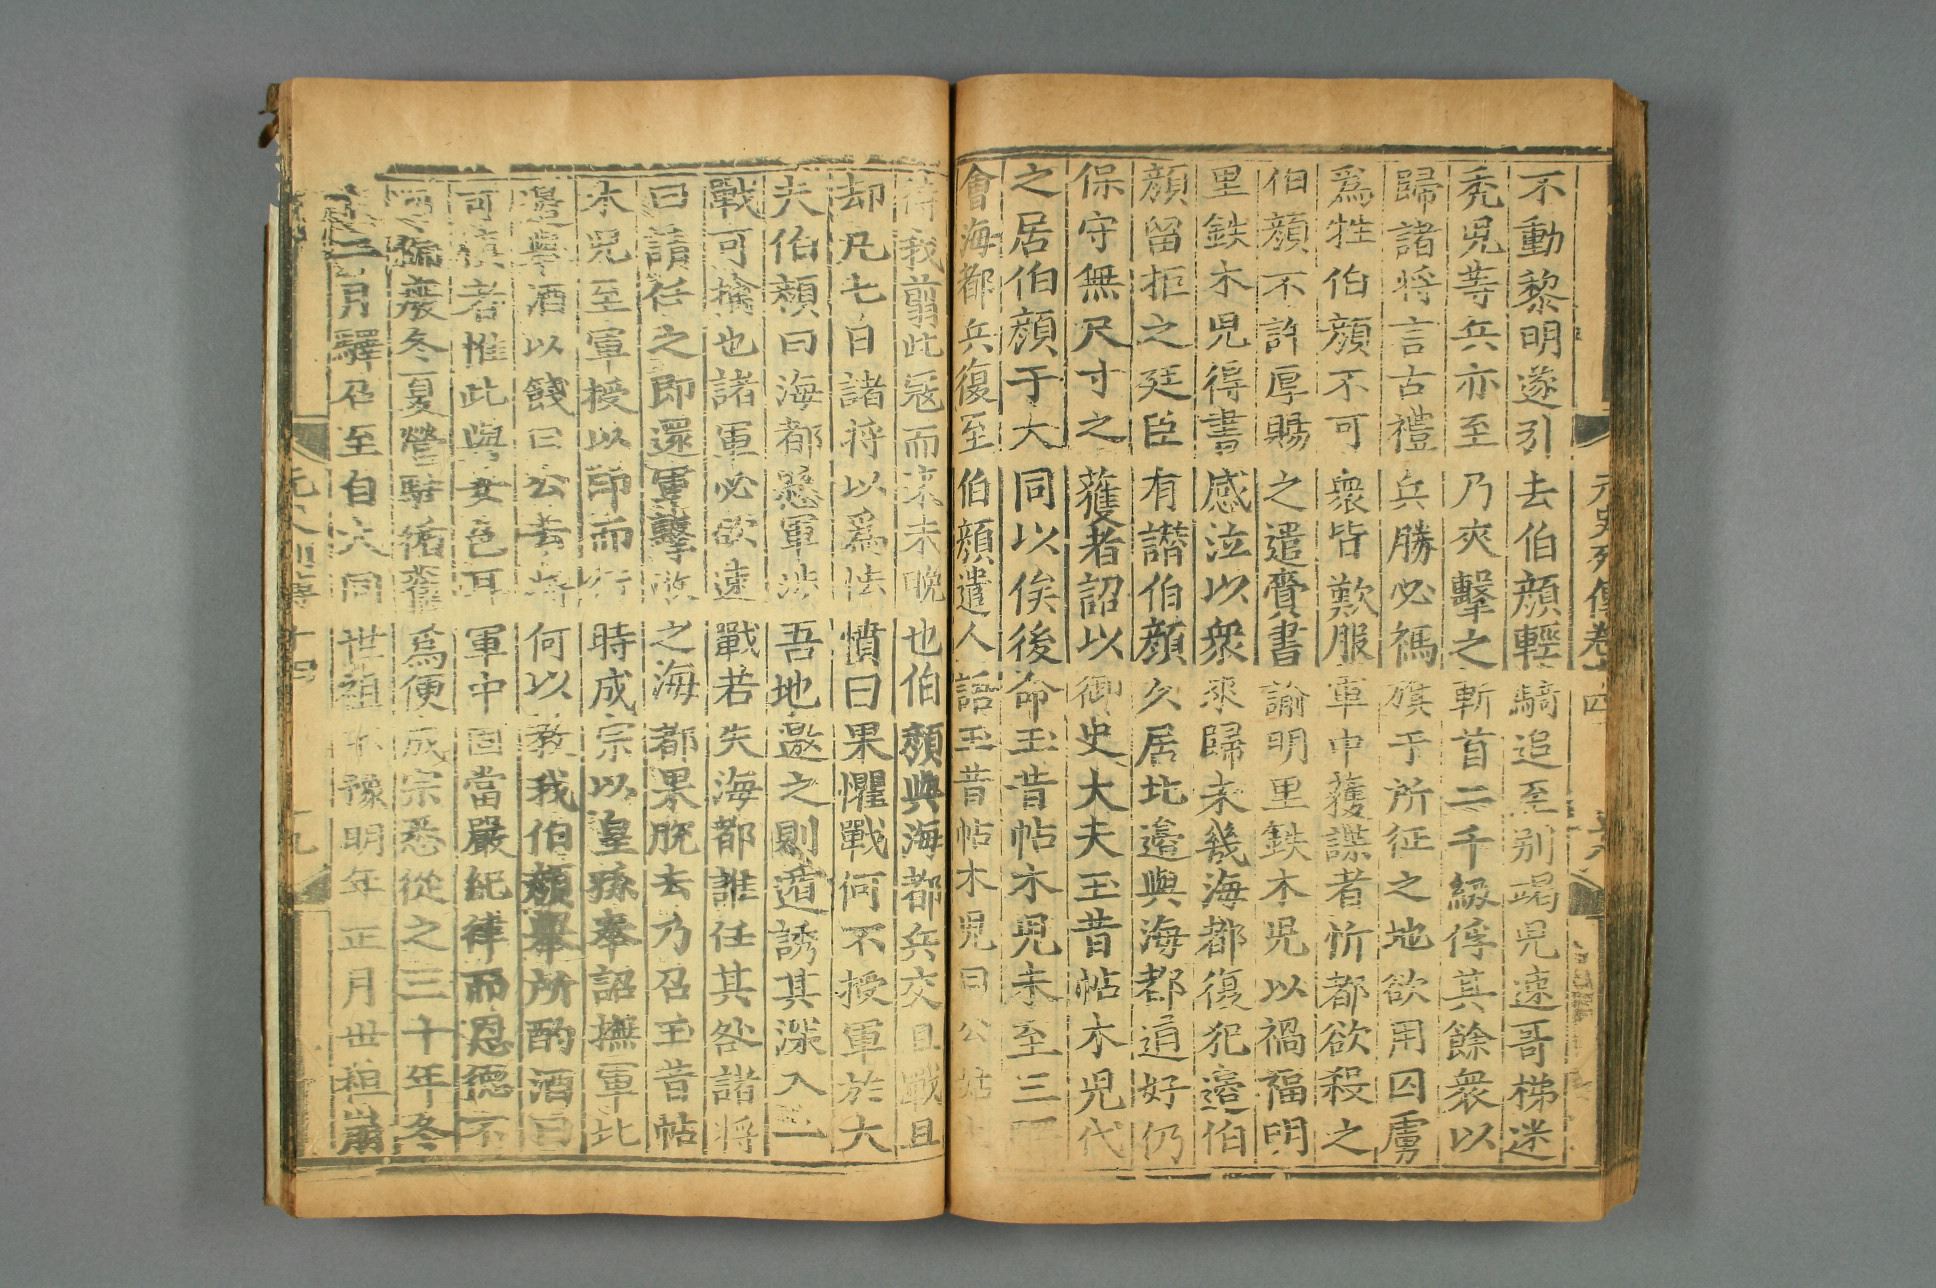 元史列傳卷十四
不動黎明遂引去伯顏輕騎追至别竭兒速哥梯迷
禿兒等兵亦至乃夾擊之斬首二千級俘其餘衆以
歸諸將言古禮兵勝必禡旗于所征之地欲用囚虜
爲牲伯顏不可衆皆歎服軍中獲諜者忻都欲殺之
伯顏不許厚賜之遣齎書諭明里鉄木兒以禍福明
里鉄木兒得書感泣以衆來歸未幾海都復犯邉伯
顏留拒之廷臣有譖伯顏久居北邉與海都通好仍
保守無尺寸之蒦者詔以御史大夫玉昔帖木兒代
之居伯顏于大同以俟後命玉昔帖木兒未至三
會海都兵復至伯顏遣人語玉昔帖木兒曰公姑
待我翦此寇而來未晩也伯顏與海都兵交且戰且
却凡七日諸將以爲怯憤曰果懼戰何不授軍於大
夫伯顏曰海都懸軍涉吾地邀之則遁誘其深入一
戰可擒也諸軍必欲速戰若失海都誰任其咎諸將
曰請任之即還軍擊敗之海都果脫去乃召玉昔帖
木兒至軍授以印而行時成宗以皇孫奉詔撫軍北
邊舉酒以餞曰公去將何以敎我伯顏舉所酌酒曰
可愼者惟此與女色耳軍中固當嚴紀律而恩德不
可偏廢冬夏營駐循舊爲便成宗悉從之三十年冬
十二月驛召至自大同世祖不豫明年正月世祖崩
元史列傳十四